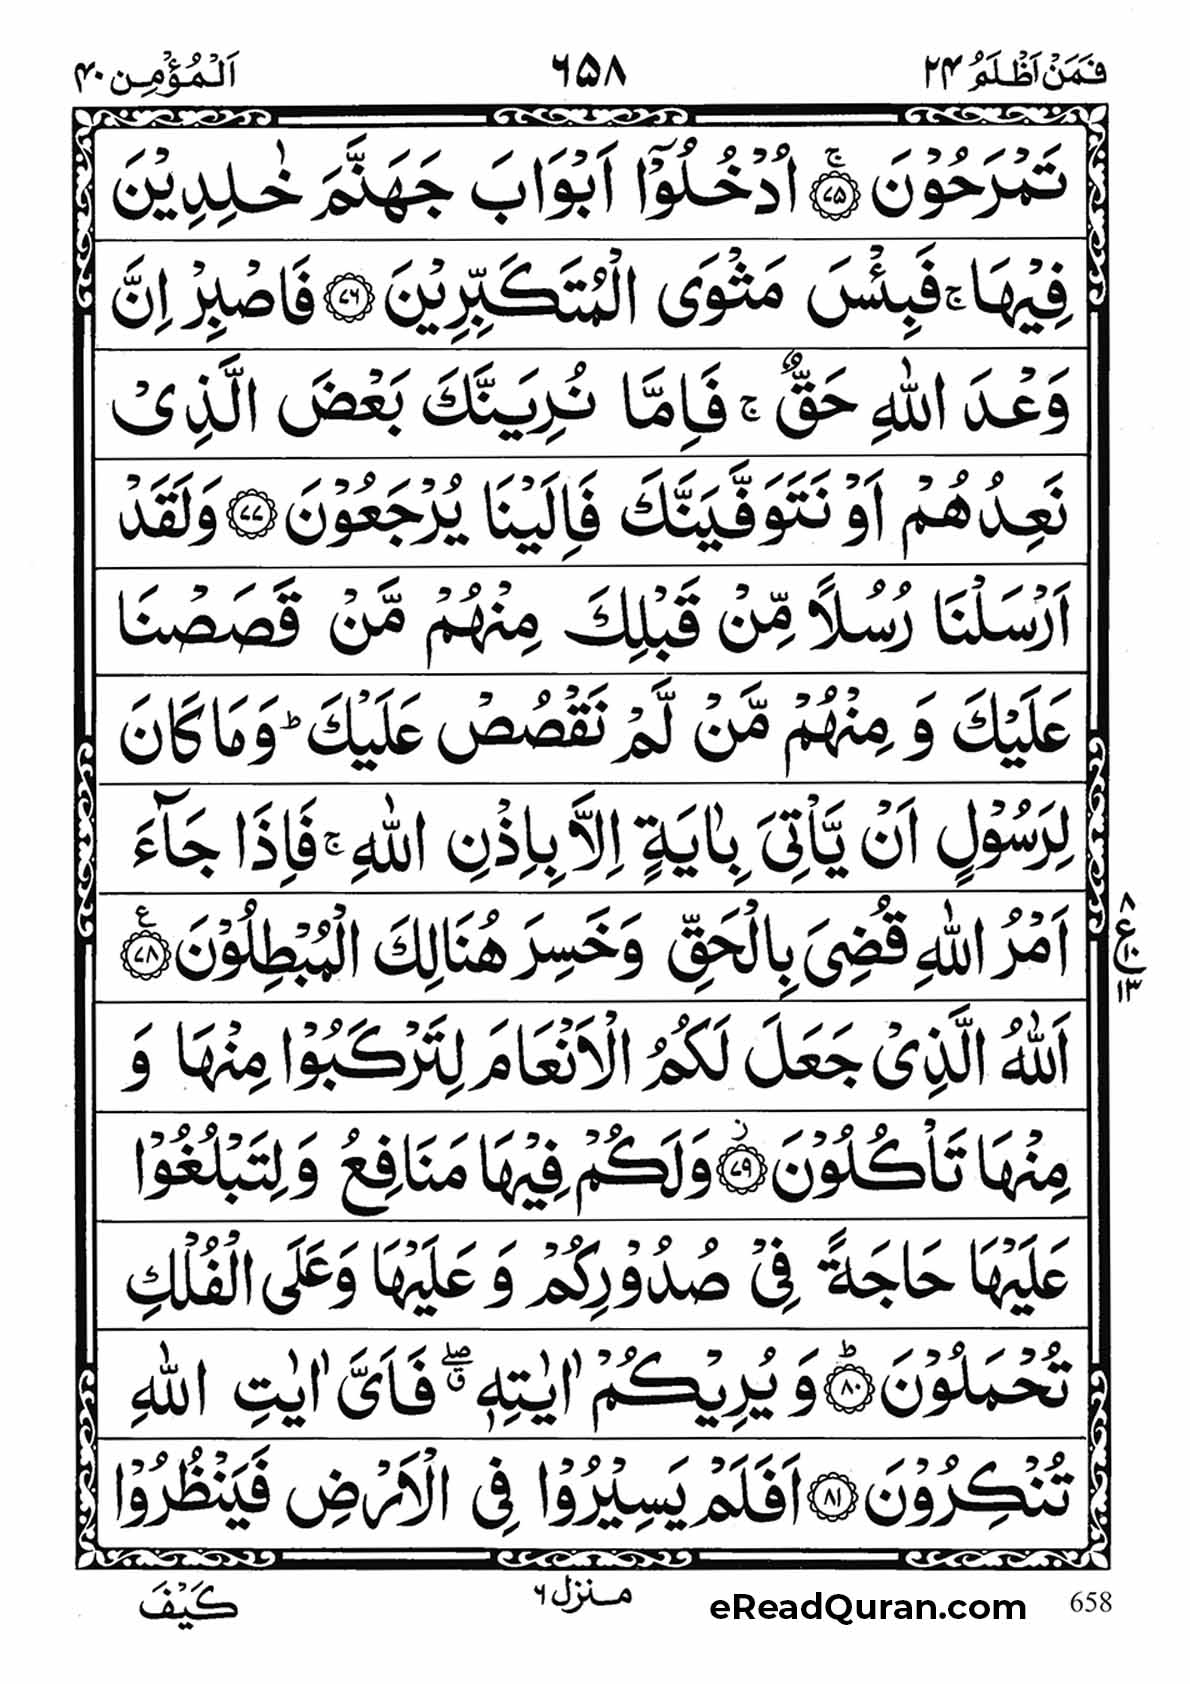 فَمَنْ اَظْلَمُ ۲۴ ۶۵۸ اَلْمُؤْمِن ۴۰
تَمْرَحُوْنَ ﴿۷۵﴾ۚ اُدْخُلُوْۤا اَبْوَابَ جَهَنَّمَ خٰلِدِيْنَ
فِيْهَا ۚ فَبِئْسَ مَثْوَى الْمُتَكَبِّرِيْنَ ﴿۷۶﴾ فَاصْبِرْ اِنَّ
وَعْدَ اللّٰهِ حَقٌّ ۚ فَاِمَّا نُرِيَنَّكَ بَعْضَ الَّذِىْ
نَعِدُهُمْ اَوْ نَتَوَفَّيَنَّكَ فَاِلَيْنَا يُرْجَعُوْنَ ﴿۷۷﴾ وَلَقَدْ
اَرْسَلْنَا رُسُلًا مِّنْ قَبْلِكَ مِنْهُمْ مَّنْ قَصَصْنَا
عَلَيْكَ وَ مِنْهُمْ مَّنْ لَّمْ نَقْصُصْ عَلَيْكَ ؕ وَمَا كَانَ
لِرَسُوْلٍ اَنْ يَّاْتِىَ بِاٰيَةٍ اِلَّا بِاِذْنِ اللّٰهِ ۚ فَاِذَا جَآءَ
اَمْرُ اللّٰهِ قُضِىَ بِالْحَقِّ وَخَسِرَ هُنَالِكَ الْمُبْطِلُوْنَ ﴿۷۸﴾ ع
۸ ع ۱۰ ۱۳
اَللّٰهُ الَّذِىْ جَعَلَ لَكُمُ الْاَنْعَامَ لِتَرْكَبُوْا مِنْهَا وَ
مِنْهَا تَاْكُلُوْنَ ﴿۷۹﴾ز وَلَكُمْ فِيْهَا مَنَافِعُ وَلِتَبْلُغُوْا
عَلَيْهَا حَاجَةً فِىْ صُدُوْرِكُمْ وَ عَلَيْهَا وَعَلَى الْفُلْكِ
تُحْمَلُوْنَ ﴿۸۰﴾ؕ وَ يُرِيْكُمْ اٰيٰتِهٖ ۖق فَاَىَّ اٰيٰتِ اللّٰهِ
تُنْكِرُوْنَ ﴿۸۱﴾ اَفَلَمْ يَسِيْرُوْا فِى الْاَرْضِ فَيَنْظُرُوْا
منزل ۶ كَيْفَ
eReadQuran.com 658